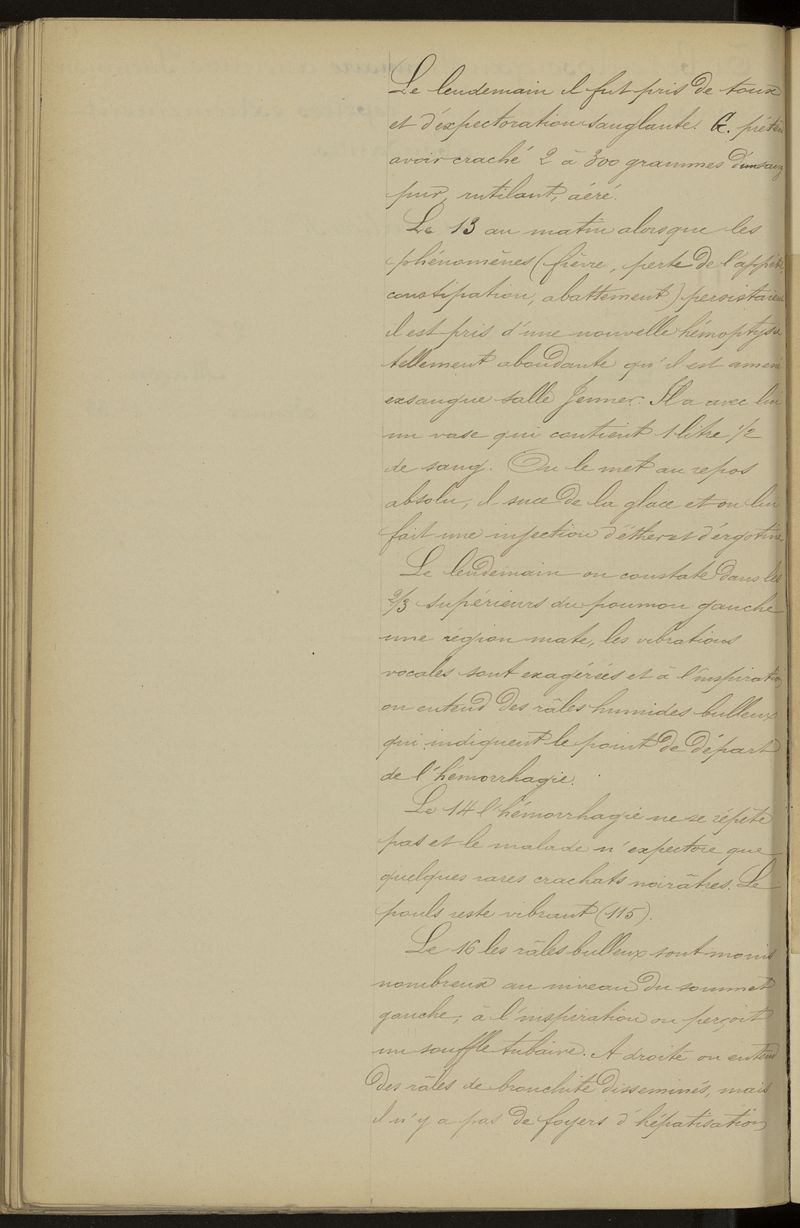 Le lendemain il fut pris de toux
et d'expectoration sanglante. G. prétend
avoir craché 2 à 300 grammes d'un sang
pur, rutilant, aéré.
Le 13 au matin alors que les
phénomènes (fièvre, perte de l'appétit,
constipation, abattement) persistaient
il est pris d'une nouvelle hémoptysie
tellement abondante qu'il est amené
exsangue salle Jenner. Il a avec lui
un vase qui contient 1 litre 1/2
de sang. On le met au repos
absolu, il suce de la glace et on lui
fait une injection d'éther et d'ergotine
Le lendemain on constate dans les
2/3 supérieurs du poumon gauche
une région mate, les vibrations
vocales sont exagérées et à l'inspiration
on entend des râles humides bulleux
qui indiquent le point de départ
de l'hémorrhagie.
Le 14 l'hémorrhagie ne se répète
pas et le malade n'expectore que
quelques rares crachats noirâtres. Le
pouls reste vibrant (115).
Le 16 les râles bulleux sont moins
nombreux au niveau du sommet
gauche; à l'inspiration on perçoit
un souffle tubaire. A droite on entend
des râles de bronchite disseminés, mais
il n'y a pas de foyers d'hépatisation